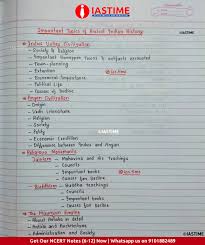 IASTIME
Important Topics of Ancient Indian History
IASTIME
Indus Valley Civilization
- Society & Religion
- Important Harappan Towns & artifacts excavated
- Town-planning
- Extention
IASTIME
- Economical Importance
- Political Life
- Causes of Decline
Aryan Civilization
- Origin
- Vedic Literature
- Society
- Polity
- Economic Condition
IASTIME
- Difference between Indus & Aryan civilization
Religious Movements
- Jainism → Mahavira and His Teachings
→ Councils
→ Important books
IASTIME
→ Causes for decline
- Buddhism → Buddha teachings
→ Councils
→ Important books
→ Causes for Decline
The Mauryan Empire
- About Ashoka in detail
- Edicts and Inscriptions
- Administration and Society
IASTIME
Get Our HCERT Notes (6-12) Now | Whatsapp us on 9101882489